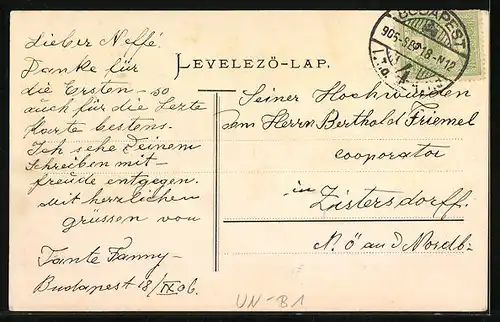 Lieber Neffe.
Danke für
die Ersten - so
auch für die Lezte
Karte bestens.
Ich sehe Deinem
Schreiben mit-
freude entgegen.
Mit herzlichen
grüssen von
Tante Fanny-
Budapest 18/IX 06.
LEVELEZŐ-LAP.
BUDAPEST
906 SEP 18-N12
Seiner Hochwürden
dem Herrn Berthold Friemel
cooperator
in
Zistersdorff.
N. Ö an d Nordb-
UN-B1